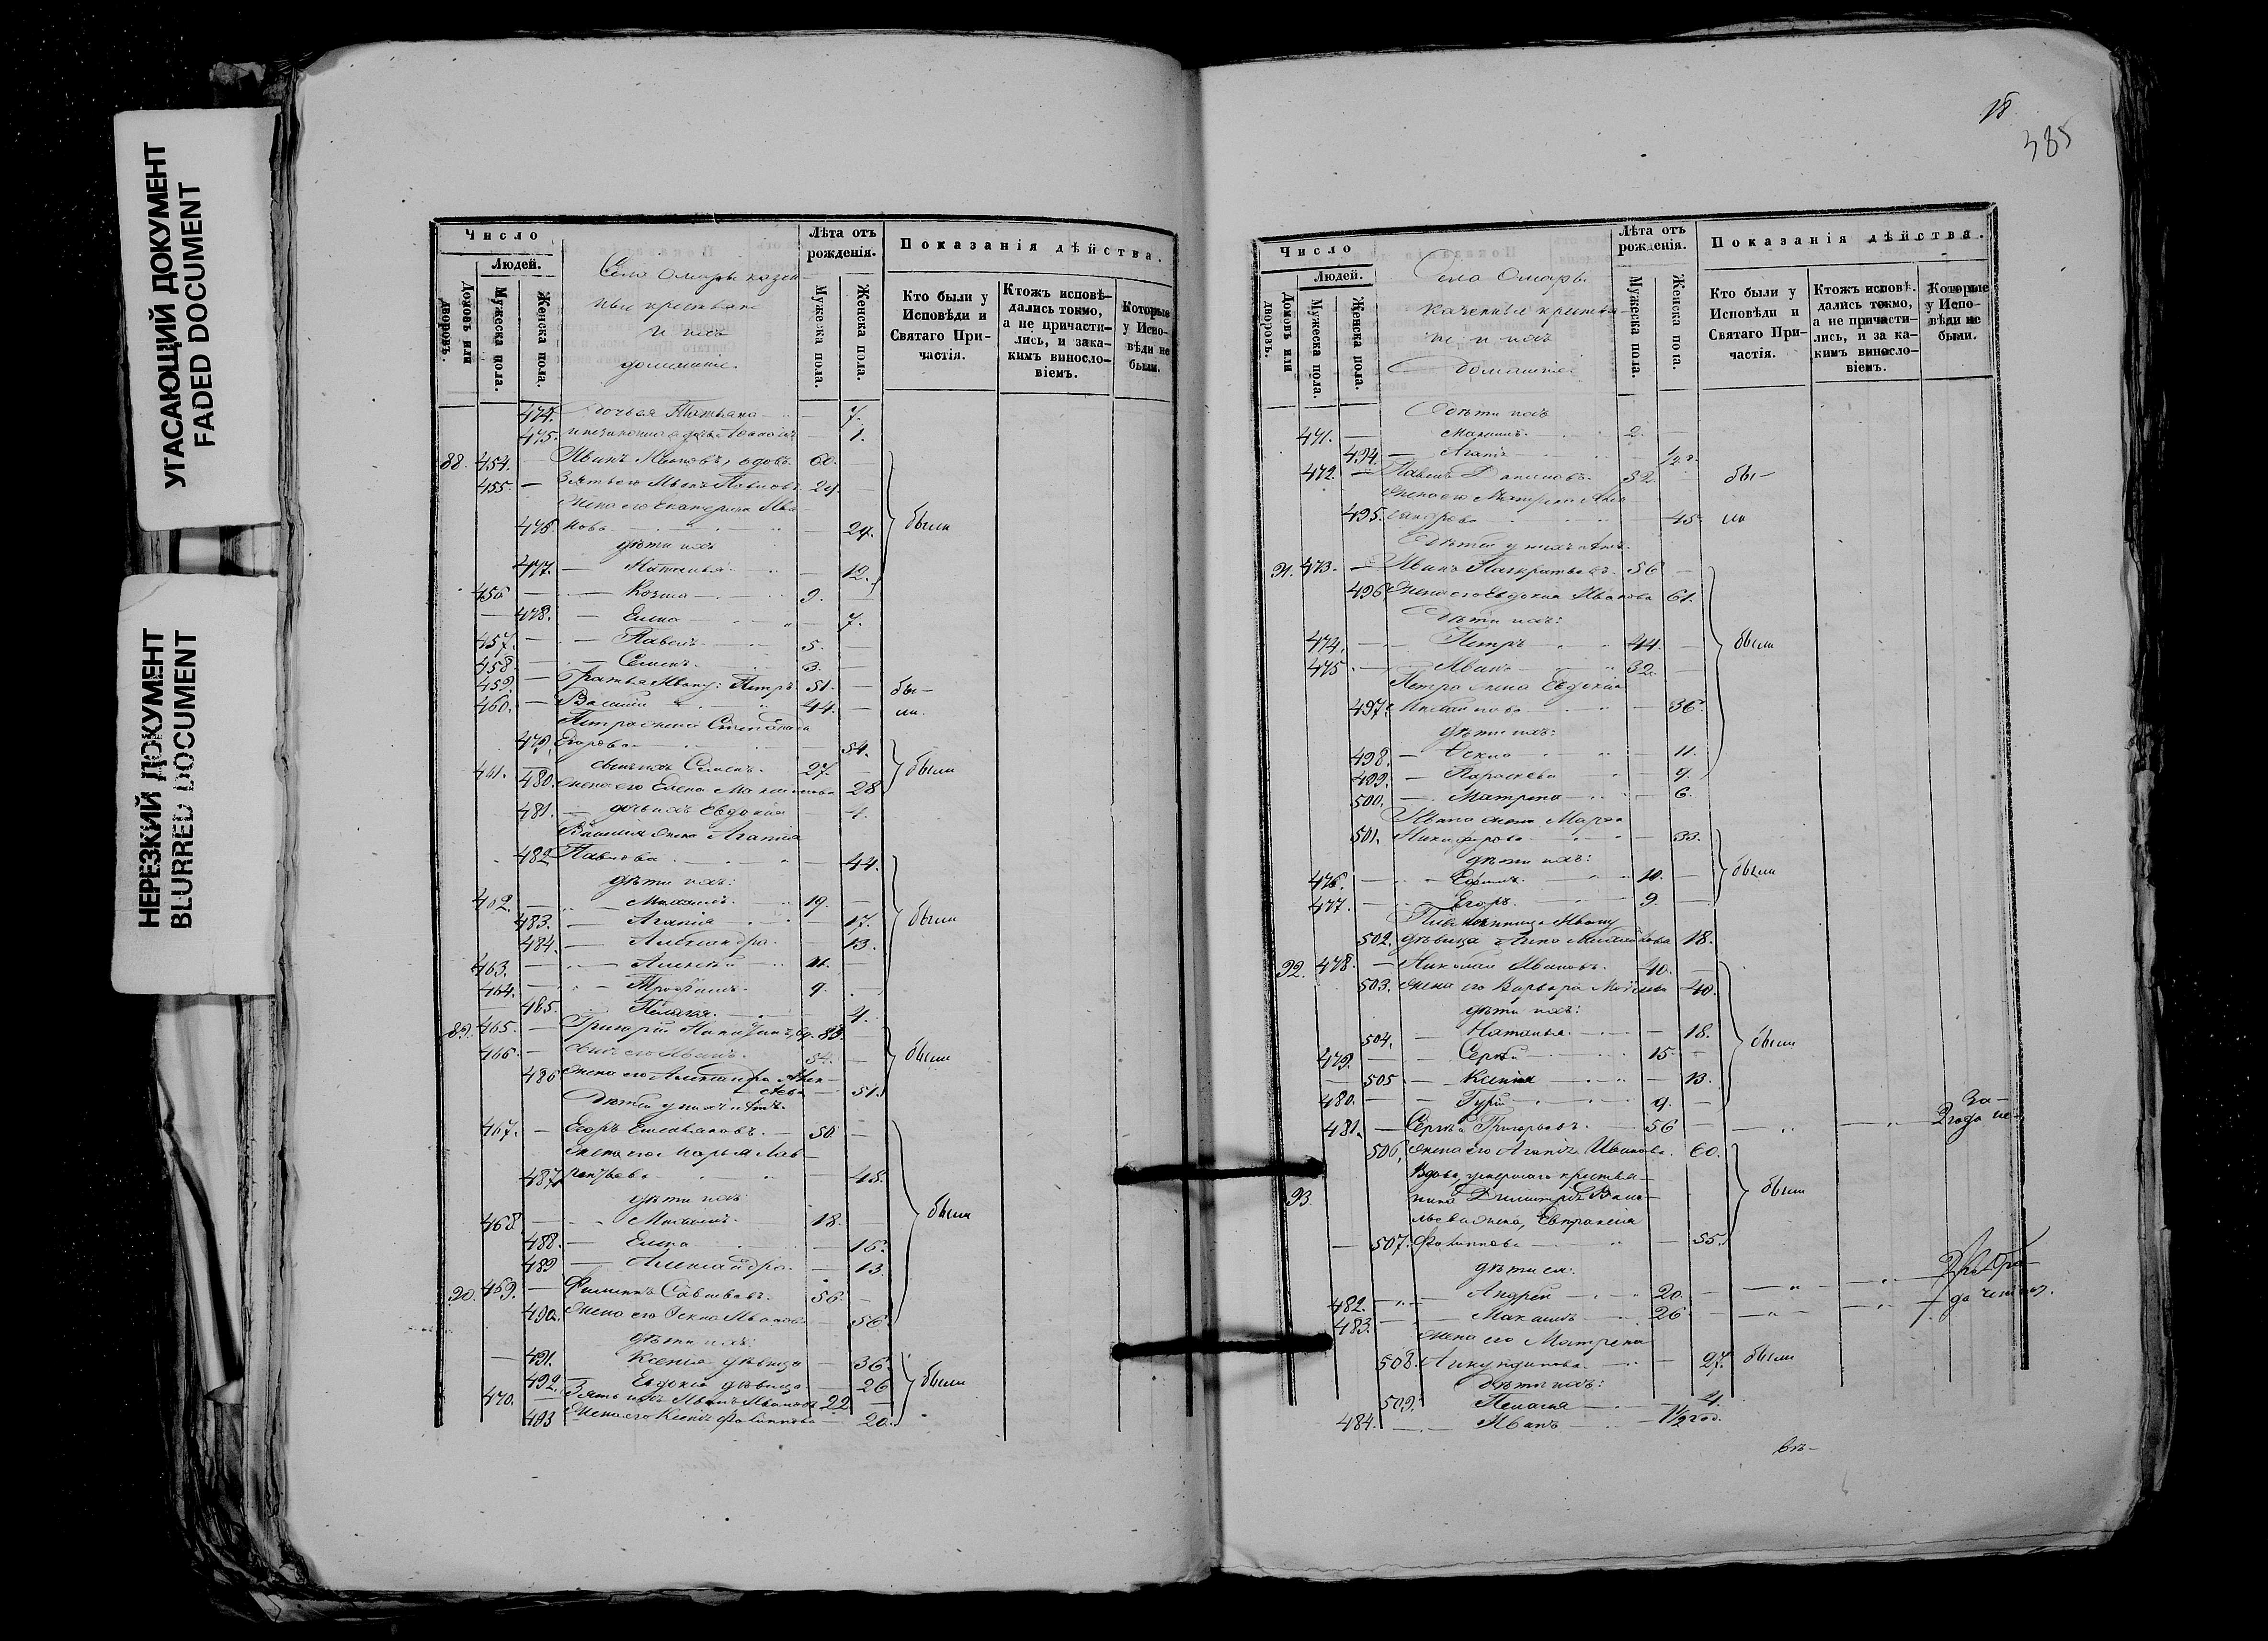 УГАСАЮЩИЙ ДОКУМЕНТ
FADED DOCUMENT
НЕРЕЗКИЙ ДОКУМЕНТ
BLURRED DOCUMENT
Число
Людей.
Домовъ или дворовъ.
Мужеска пола.
Женска пола.
Село Омарь казен-
ные крестьяне
и ихъ
домашніе.
Лѣта отъ рожденія.
Мужеска пола.
Женска пола.
Показанія дѣйства.
Кто были у Исповѣди и Святаго При-частія.
Ктожъ исповѣ-дались токмо, а не причасти-лись, и за ка-кимъ винословіемъ.
Которые у Испо-вѣди не были.
474. Татьяна 7.
475. 1.
88. 454. — Иванъ вдовъ. 60. —
455. — Зять его Иванъ Павловъ 29. —
Жена его Екатерина Ива-
476. нова — 29. были
дѣти ихъ
477. — Наталья — 12.
456. — Козма 9. —
478. — Елена — 7.
457. — Павелъ 5. —
458. — Семенъ 3. —
459. — Братья Ивану: Петръ 51. — бы-
460. — Василій 44. — ли.
Петра жена Степанида
479. Егорова — 54.
461. — сынъ ихъ Семенъ. 27. — были
480. жена его Елена 28
481. — дочь ихъ Евдокія — 4.
Василія жена Агапія
482. Павлова — 44.
дѣти ихъ:
462. — Михаилъ. 19. —
483. — Агапія 17. были
484. — Александра. — 13.
463. — Алексѣй 11. —
464. — Трофимъ. 9. —
485. — Пелагія. 4.
89. 465. — Григорій вд. 83.
466. — сынъ его Иванъ. 54. — были
486 жена его Александра Алек-
сѣева — 51.
Дѣтей у нихъ нѣтъ.
467. — Егоръ 50 —
жена его Марья Лав-
487. рентьева — 48.
дѣти ихъ
468. — Михаилъ. 18. — были
488. — Елена — 15.
489 — Александра. — 13.
90. 469. — Филиппъ Савельевъ. 56. —
490. жена его Ѳекла Иванова 56.
дѣти ихъ:
491. Ксенія дѣвица — 36.
492. — Евдокія дѣвица — 26 были
470. — Зять ихъ Иванъ Ивановъ 22 —
493 Жена его Ксенія Филиппова — 20.
18
385
Число
Людей.
Домовъ или дворовъ.
Мужеска пола.
Женска пола.
Село Омарь
казенные крестья-
не и ихъ
домашніе.
Лѣта отъ рожденія.
Мужеска пола.
Женска пола.
Показанія дѣйства.
Кто были у Исповѣди и Святаго При-частія.
Ктожъ исповѣ-дались токмо, а не причасти-лись, и за ка-кимъ винословіемъ.
Которые у Испо-вѣди не были.
Дѣти ихъ
471. — 2. —
494. — Агапія
472. — Павелъ 52. бы-
жена его Матрена Алек-
495. сандрова 45. ли
Дѣтей у нихъ нѣтъ.
91. 473. — Иванъ Панкратьевъ. 56 —
496. жена его Евдокія Иванова 61.
Дѣти ихъ:
474. — Петръ 44. — были
475. — Иванъ 32. —
Петра жена Евдокія
497. — 36.
дѣти ихъ:
498. — Ѳекла 11.
499. — Параскева 9.
500. — Матрена 6.
Ивана жена Марѳа
501. Никифорова — 33.
дѣти ихъ:
476. — 10. — были
477. — Егоръ. 9. —
Племянница Ивану
502. дѣвица Анна Михайлова 18.
92. 478. — Николай Ивановъ. 40. —
503. жена его Варвара 40.
дѣти ихъ:
504. — Наталья. — 18. были
479. — Сергѣй 15. —
505. — Ксенія — 13.
480. — Гурій 9. — За
481. — Сергѣй Григорьевъ. 56 — 2 года
506. жена его Агапія Иванова. 60.
Вдова умершаго крестья-
93. нина Димитрія Василь- были
ьева жена, Евпраксія
— 507. Филиппова — 55.
дѣти ея:
482. — Андрей 20. —
483. — Максимъ 26 —
жена его Матрена
508. — 27. были
Дѣти ихъ:
509. Пелагія — 4.
484. — Иванъ 1/2 год.